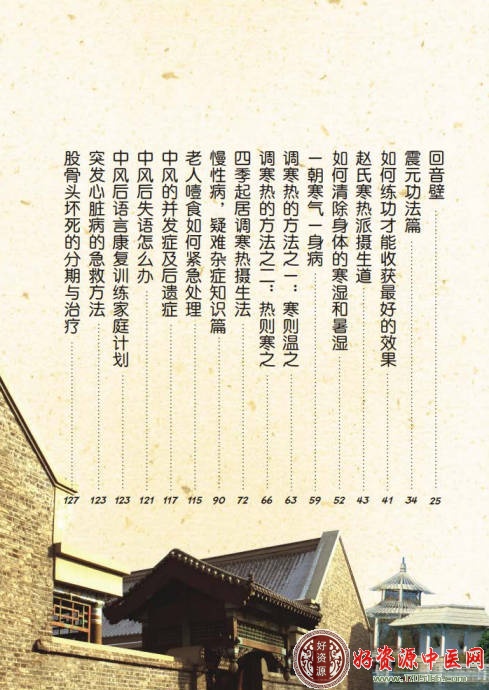 回音壁 25
震元功法篇 34
如何练功才能收获最好的效果 41
赵氏寒热派摄生道 43
如何清除身体的寒湿和暑湿 52
一朝寒气一身病 59
调寒热的方法之一：寒则温之 63
调寒热的方法之二：热则寒之 66
四季起居调寒热摄生法 72
慢性病，疑难杂症知识篇 90
老人噎食如何紧急处理 115
中风的并发症及后遗症 117
中风后失语怎么办 121
中风后语言康复训练家庭计划 123
突发心脏病的急救方法 123
股骨头坏死的分期与治疗 127
好资源
好资源中医网